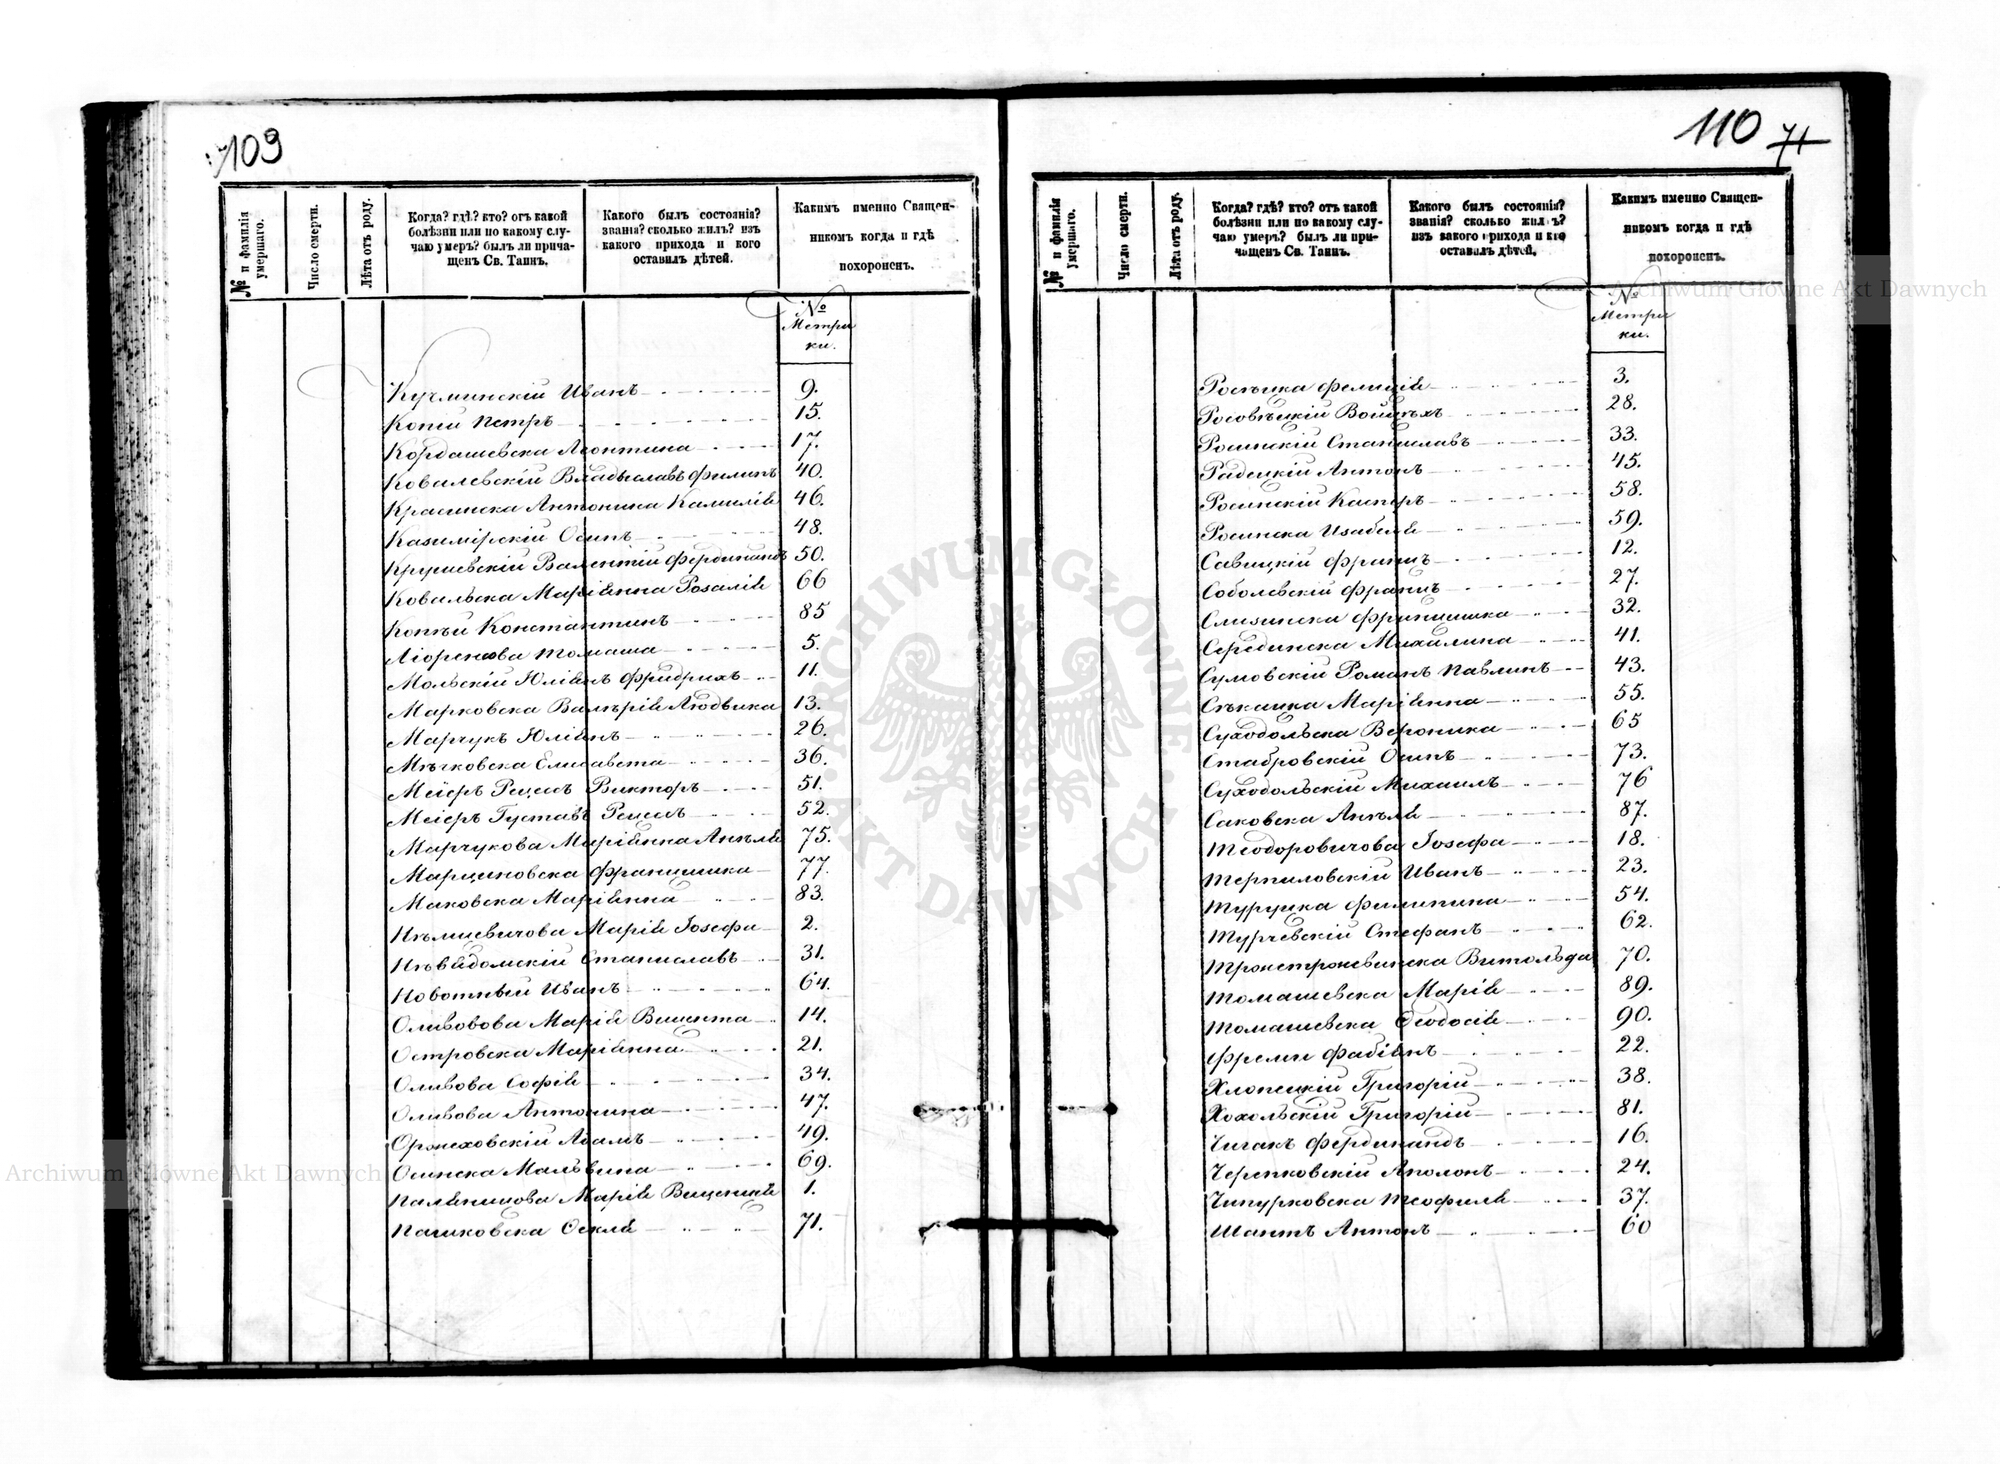 109
№ и фамилія умершаго.
Число смерти.
Лѣта отъ роду.
Когда? гдѣ? кто? отъ какой
болѣзни или по какому слу-
чаю умеръ? былъ ли прича-
щенъ Св. Таинъ.
Какого былъ состоянія?
званія? сколько жилъ? изъ
какого прихода и кого
оставилъ дѣтей.
Какимъ именно Священ-
никомъ когда и гдѣ
похороненъ.
№
Метри
ки.
Кучминскій Иванъ 9.
Копій Петръ 15.
Кордашевска Леонтина 17.
Ковалевскій Владыславъ Филипъ 40.
Красинска Антонина Камилія 46.
Казимірскій Осипъ 48.
Крушевскій Валентій Фердинандъ 50.
Ковальска Маріянна Розалія 66
Копѣй Константинъ 85
Томаша 5.
Мольскій Юліянъ Фридрихъ 11.
Марковска Валѣрія Людвика 13.
Марчукъ Юліянъ 26.
Мѣчковска Елисавета 36.
Меіеръ Викторъ 51.
Меіеръ Густавъ 52.
Марчукова Маріянна Анѣля 75.
Марциновска Францишка 77.
Маковска Маріянна 83.
Нѣмцевичова Марія Іозефа 2.
Нѣвядомскій Станиславъ 31.
Новотный Иванъ 64.
Оливовова Марія Винцента 14.
Островска Маріянна 21.
Оливова Софія 34.
Оливова Антонина 47.
Оржеховскій Адамъ 49.
Осинска Мальвина 69.
Марія Винценція 1.
Пашковска Текля 71.
110 71
№ и фамилія умершаго.
Число смерти.
Лѣта отъ роду.
Когда? гдѣ? кто? отъ какой
болѣзни или по какому слу-
чаю умеръ? былъ ли при-
чащенъ Св. Таинъ.
Какого былъ состоянія?
званія? сколько жилъ?
изъ какого прихода и кго
оставилъ дѣтей.
Какимъ именно Священ-
никомъ когда и гдѣ
похороненъ.
№
Метри
ки.
Фелиція 3.
Росовѣцкій Войцѣхъ 28.
Росинскій Станиславъ 33.
Радецкій Антонъ 45.
Росинскій Касперъ 58.
Росинска Изабеля 59.
Савицкій Францъ 12.
Соболевскій Францъ 27.
Слизинска Францишка 32.
Серединска Михалина 41.
Сумовскій Романъ Павлинъ 43.
Маріянна 55.
Суходольска Вероника 65
Стабровскій Осипъ 73.
Суходольскій Михаилъ 76
Саковска Анѣля 87.
Теодоровичова Іозефа 18.
Терпиловскій Иванъ 23.
Филипина 54.
Турчевскій Стефанъ 62.
Витольда 70.
Томашевска Марія 89.
Томашевска Теодосія 90.
Фабіянъ 22.
Хлопецкій Григорій 38.
Хохольскій Григорій 81.
Чигакъ Фердинандъ 16.
Черепковскій Аполонъ 24.
Чипурковска Теофиля 37.
Шантъ Антонъ 60
ARCHIWUM GŁÓWNE AKT DAWNYCH
Archiwum Główne Akt Dawnych
Archiwum Główne Akt Dawnych